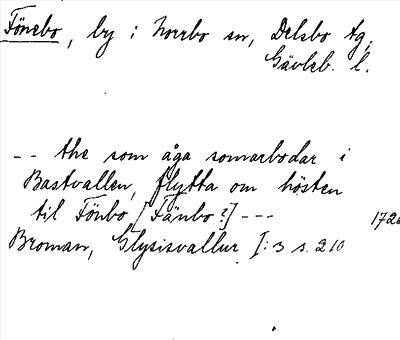 Fönebo, by i Norrbo sn, Delsbo tg,
Gävleb. l.
-- the som åga somarbodar i
Bastvallen, flytta om hösten
til Fönbo [Fänbo?] ---
Broman, Glysisvallur I:3 s. 210